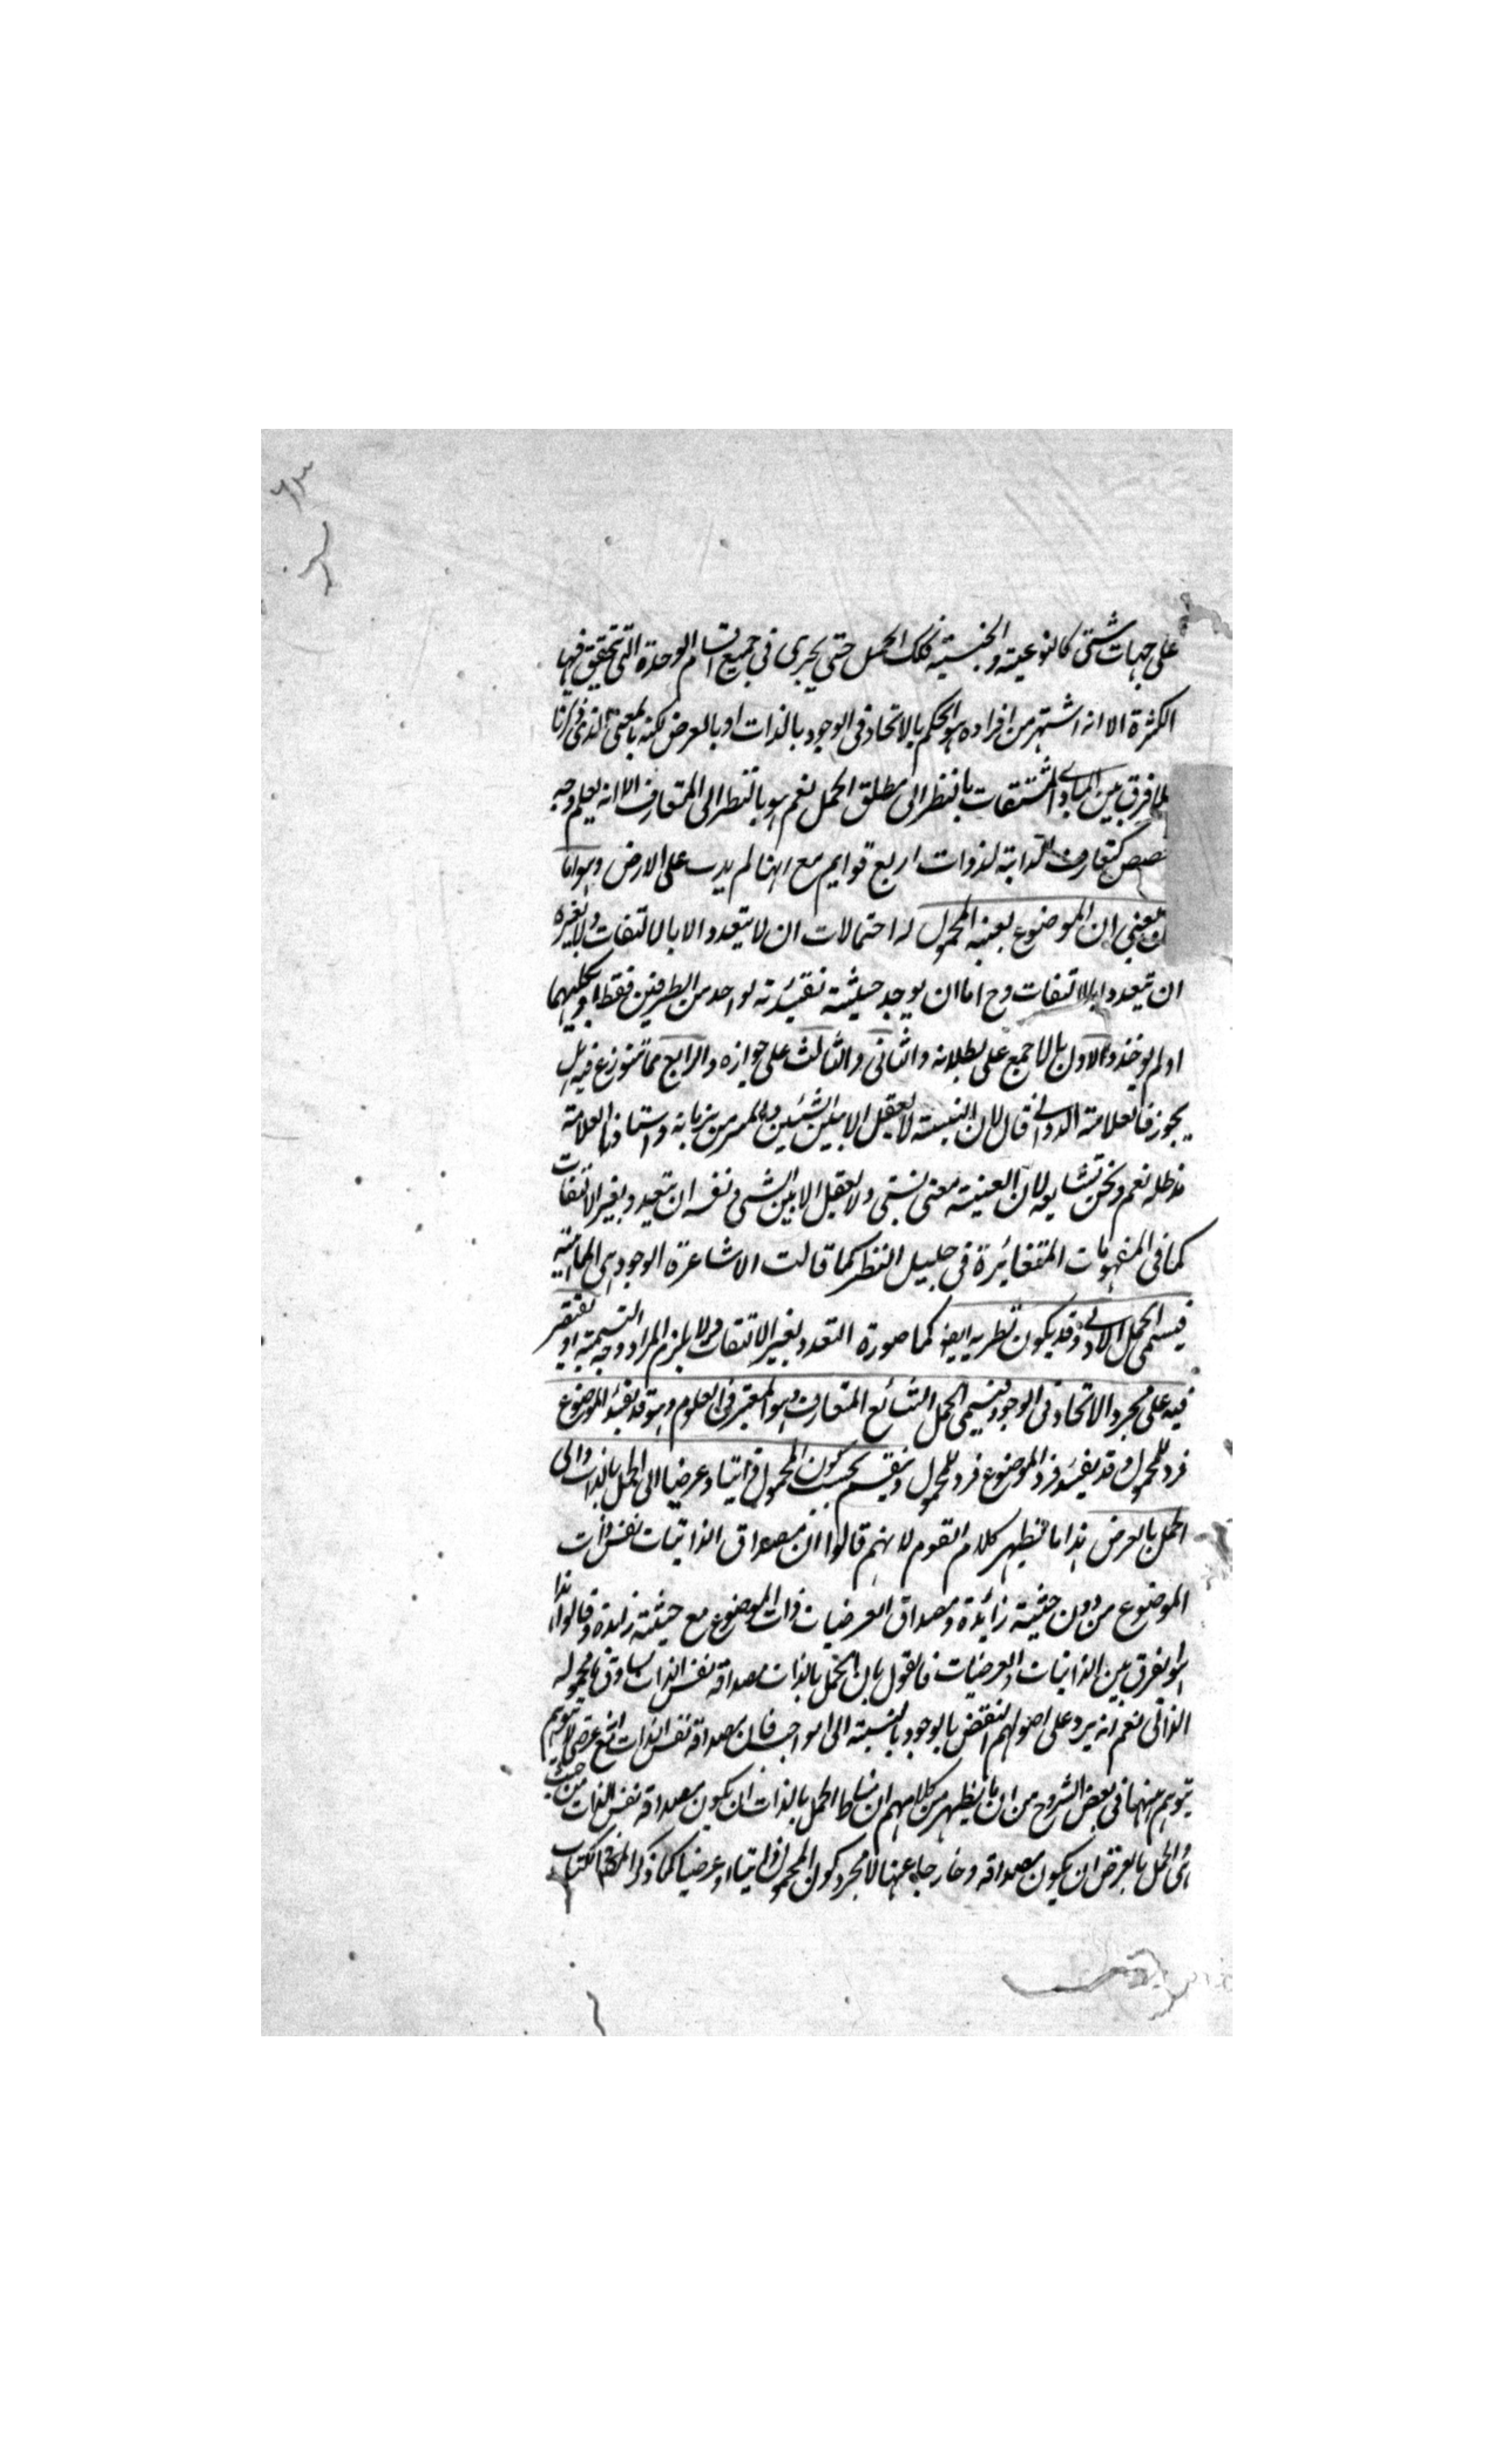 ٦٣
على جهات شتى كالنوعية والجنسية فكك الحمل حتى يجرى فى جميع اقسام الوحدة التى تحقيق فيها
الكثرة الا انه اشتهر من افراده هو الحكم بالاتحاد فى الوجود بالذات او بالعرض لكنه بالمعنى الذى ذكرنا
فرق بين المبادى المشتقات بالنظر الى مطلق الحمل نعم هو بالنظر الى المتعارف الا انه يعلم وجه
كتعارف الدابة لذوات اربع قوايم مع انها لم يدب على الارض وهو اما
يعنى ان الموضوع بعينه المحمول له احتمالات ان لا يتعدد الا بالالتفات ولا بغيره
ان يتعدد بالالتفات وح اما ان يوجد حيثية تقييدية لواحد من الطرفين فقط او كليهما
او لم يوخذ والاول بالاجمع على بطلانه والثانى والثالث على جوازه والرابع مما تنوزع فيه بل
يجوز فالعلامة الدوانى قال لا لان النسبة لا يعقل الا بين الشيئين واستاذنا العلامة
مد ظله نعم ونحن نشايعه لان العينية معنى نسبى ولا يعقل الا بين الشى ونفسه ان يتعدد بغير الالتفات
كما فى المفهومات المتغائرة فى جليل النظر كما قالت الاشاعرة الوجود هى الماهية
فيسمى الحمل الاولى وقد يكون نظريه ايضا كما صورة التعدد بغير الالتفات ولا يلزم المراد وجه التسمية او يقتصر
فيه على مجرد الاتحاد فى الوجود فيسمى الحمل الشائع المتعارف وهو المعتبر فى العلوم وهو قد يفيد الموضوع
فرد للمحمول وقد يفيد فرد الموضوع فرد للمحمول وينقسم بحسب كون المحمول ذاتيا وعرضيا الى الحمل بالذات والى
الحمل بالعرض هذا ما يظهر كلام القوم لانهم قالوا ان مصداق الذاتيات نفس ذات
الموضوع من دون حيثية زائدة ومصداق العرضيات ذات الموضوع مع حيثية زايدة وقالوا هذا
هو الفرق بين الذاتيات والعرضيات فالقول بان الحمل بالذات مصداقه نفس الذات يساوق محموله
الذاتى نعم انه يرد على اصولهم النقض بالوجود بالنسبة الى الواجب فان مصداقه نفس الذات مع عرضى لا يتوهم
يتوهم منها فى بعض الشروح من ان ما يظهر من كلامهم ان مناط الحمل بالذات ان يكون مصداقه نفس الذات من حيث
هى الحمل بالعرض ان يكون مصداقه وخارجا عنها لا مجرد كون المحمول ذاتيا او عرضيا كما ذكر المص فى الكتاب